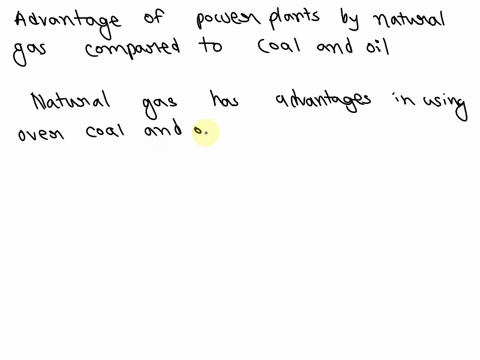 Advantage of power plants by natural
gas compared to coal and oil
Natural gas has advantages in using
over coal and o